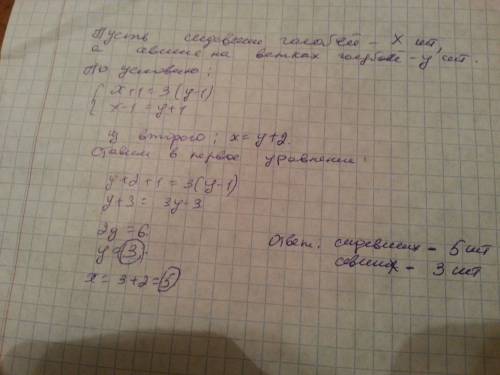 Пусть сидевших голубей - x шт,
а севших на ветках голубей - y шт.
По условию:
{ x+1=3(y-1)
x-1=y+1
из второго; x=y+2.
ставим в первое уравнение:
y+2+1=3(y-1)
y+3= 3y-3
2y=6
y=3,
x=3+2=5
Ответ: сидевших - 5 шт
севших - 3 шт